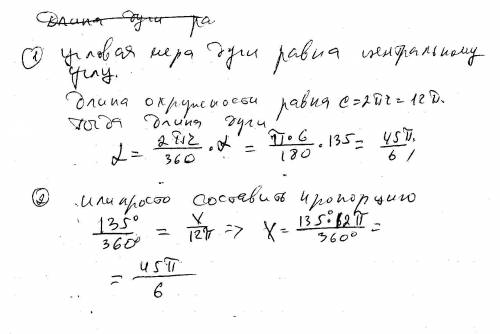 Длина дуги ра
① угловая мера дуги равна центральному
углу.
Длина окружности равна C=2πr=12π.
тогда длина дуги
L = 2πr/360 · α = π·6/180 · 135 = 45π/6,
② или просто составить пропорцию
135°/360° = x/12π => x = 135°·12π/360° =
= 45π/6